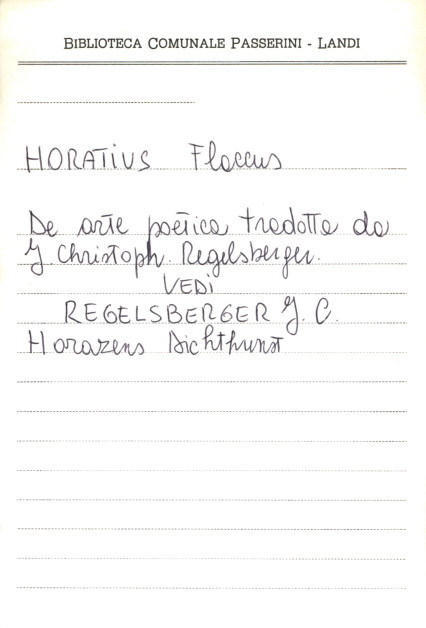 BIBLIOTECA COMUNALE PASSERINI - LANDI
HORATIUS Flaccus
De arte poëtica tradotta da
J. Christoph. Regelsberger.
VEDI
REGELSBERGER J. C.
Horazens Dichtkunst